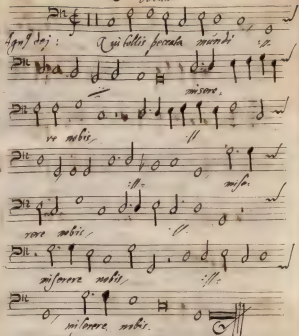 Agnus dei : Qui tollis peccata mundi :||:
misere,
re nobis, :||:
:||: mise,
rere nobis, :||:
miserere nobis, :||:
miserere nobis.